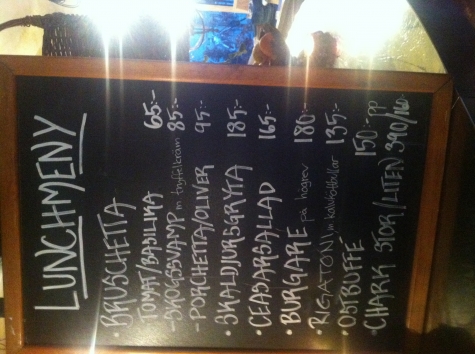 LUNCHMENY
• BRUSCHETTA
TOMAT/BASILIKA 65:-
- SKOGSSVAMP m tryffelkräm 85:-
- PORCHETTA/OLIVER 95:-
• SKALDJURSGRYTA 185:-
• CEASARSALLAD 165:-
• BURGARE på högrev 180:-
• RIGATONI m kalvköttbullar 135:-
• OSTBUFFÉ 150:- PP
• CHARK STOR/LITEN 390/160:-